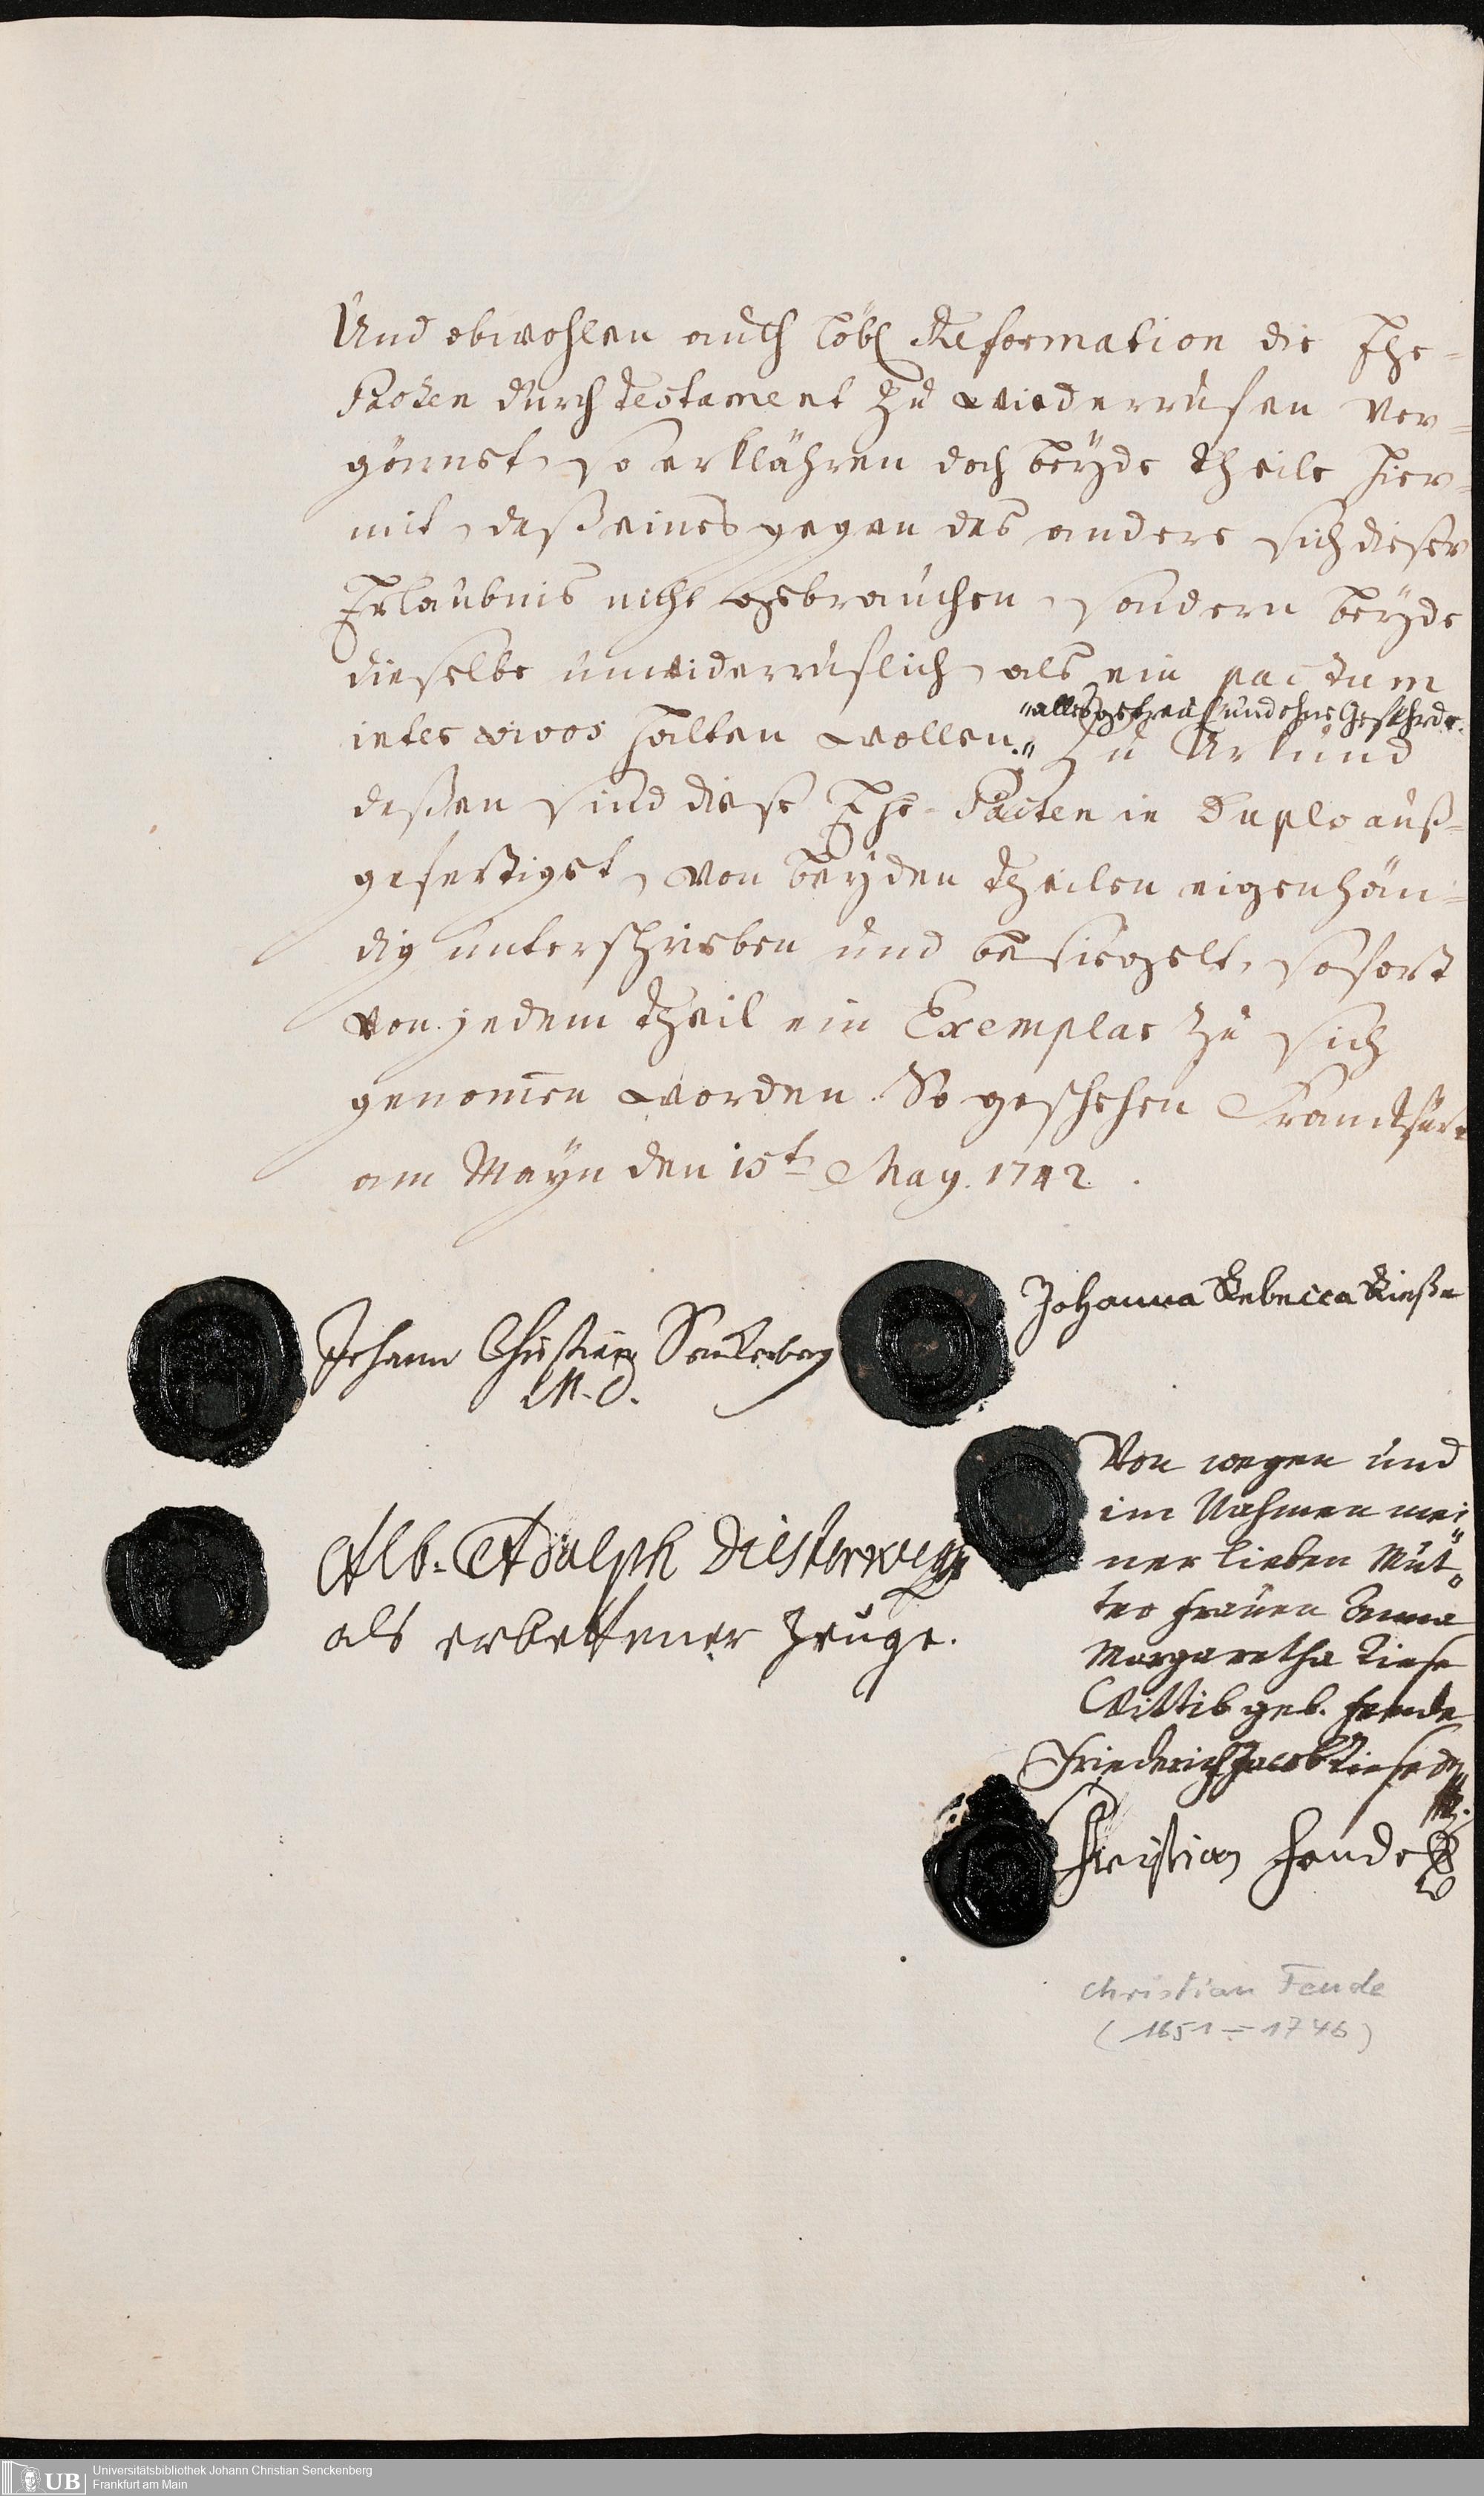 Und obwohlen auch löbl Reformation die Ehe-
Pacten durch Testament zu wiederrufen ver-
gönnet, so erklähren doch beÿde theile hier-
mit, daß eines gegen das andere sich dieser
Erlaubnis nicht gebrauchen, sondern beÿde
dieselbe unwiderruflich, als ein pactum
inter vivos halten wollen." Zu Urkund
"alles getreul und ohne Gefährde.
deßen sind diese Ehe-Pacten in Duplo auß-
gefertiget, von beÿden theilen eigenhän-
dig unterschrieben und besiegelt, sofort
von jedem theil ein Exemplar zu sich
genom̅en worden. So geschehen Franckfurt
am Maÿn den 15t May. 1742.
Johann Christian Senckenberg
M.D.
Johanna Rebecca Rieße
Alb. Adolph Diesterweg
als erbettener Zeuge.
Von wegen und
im Nahmen mei
ner lieben Mut
ter frauen Anna
Margaretha Riese
Wittib geb. fende
Friederich Jacob Riese
Christian Fende
Christian Fende
(1651-1746)
UB
Universitätsbibliothek Johann Christian Senckenberg
Frankfurt am Main